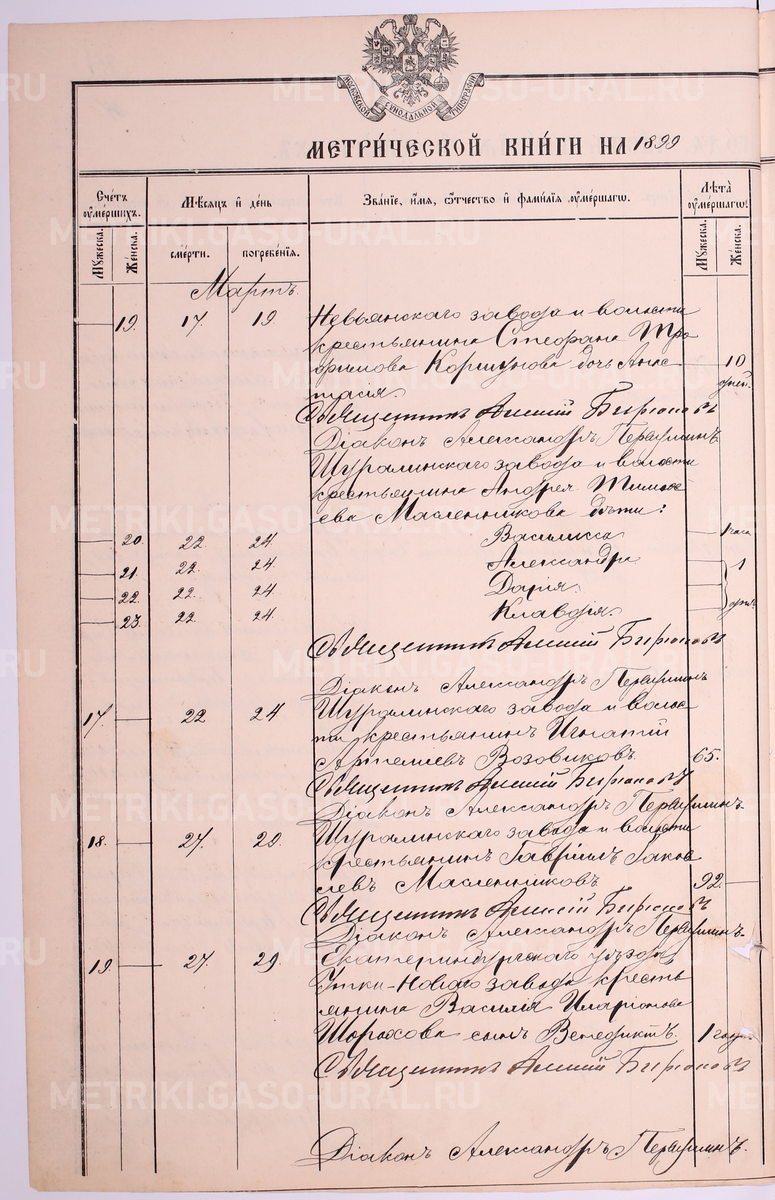 МОСКОВСКОЙ СѴНОДАЛЬНОЙ ТИПОГРАФІИ
МЕТРИ́ЧЕСКОЙ КНИ́ГИ НА 1899
Сче́тъ оуме́ршихъ.
Мѣ́сяцъ и де́нь
Зва́нїе, и́мя, ѻ́тчество и фами́лїя оуме́ршагѡ.
Лѣ́та оуме́ршагѡ.
Мꙋ́жеска.
Же́нска.
сме́рти.
погребе́нїя.
Мꙋ́жеска.
Же́нска.
Мартъ.
19. 17. 19. Невьянскаго завода и волости
крестьянина Стефана Тро
фимова Коршунова дочь Анас- 10
тасія. дней.
Священникъ Алексій Бирюковъ
Діаконъ Александръ Первушинъ
Шуралинскаго завода и волости
крестьянина Андрея Тимофе
ева Масленникова дѣти:
20. 22. 24 Василисса 1 часа
21. 22. 24. Александра 1
22. 22. 24 Дарія.
23. 22. 24. Клавдія.
Священникъ Алексій Бирюковъ
Діаконъ Александръ Первушинъ
17. 22. 24 Шуралинскаго завода и волос
ти крестьянинъ Игнатій
Артемиевъ Возовиковъ. 65.
Священникъ Алексій Бирюковъ
Діаконъ Александръ Первушинъ
18. 27. 29. Шуралинскаго завода и волости
крестьянинъ Гавріилъ Іаков
левъ Масленниковъ 92.
Священникъ Алексій Бирюковъ
Діаконъ Александръ Первушинъ
19. 27. 29. Екатеринбургскаго уѣзда,
Утки-Новаго завода кресть
янина Василія Иларіонова
Шорохова сынъ Венедиктъ. 1 года
Священникъ Алексій Бирюковъ
Діаконъ Александръ Первушинъ.
METRIKI.GASO-URAL.RU